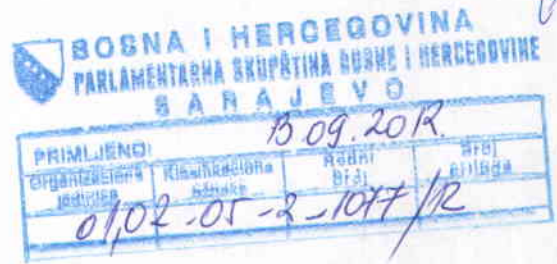 BOSNA I HERCEGOVINA
PARLAMENTARNA SKUPŠTINA BOSNE I HERCEGOVINE
SARAJEVO
PRIMLJENO: 13.09.2012.
Organizaciona jedinica Klasifikaciona oznaka Redni broj Broj priloga
01,02-05-2-1077/12